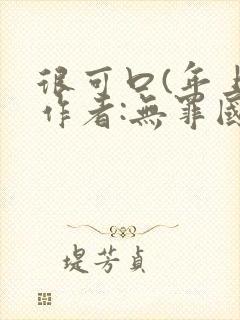 很可口(年上
作者:無罪國
堤芳貞